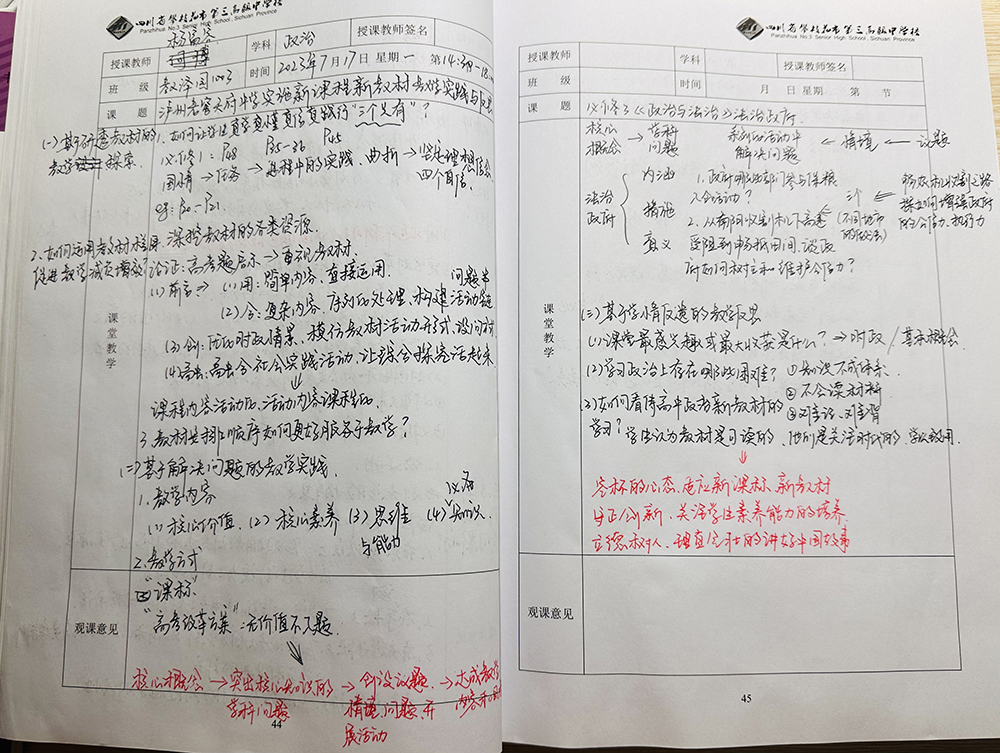 四川省攀枝花市第三高级中学校
Panzhihua No.3 Senior High School, Sichuan Province
授课教师 学科 政治 授课教师签名
班级 时间 2023年7月17日 星期一 第14:30-18:
课题 泸州老窖天府中学实施新课程新教材教学实践与反思
(一)基于研透教材的
教学 探索
1.如何让学生真学真懂真信真践行“三个只有”?
必修1:P48 P35-36 P45
国情→任务→过程中的实践、曲折→坚定理想信念
四个自信
2.如何运用教材栏目 深挖教材的各类资源
促进教学减负增效?论证:高考题启示→再观教材
(1)用:简单内容、直接运用
(2)合:复杂内容、序列化处理、构建活动
问题串
(3)创: 时政情景、模仿教材活动形式、设问
(4)
课程内容活动化、活动内容课程化
3.教材 排 顺序如何更好服务于教学?
课堂教学
(二)基于解决问题的教学实践
1.教学内容
(1)核心价值 (2)核心素养 (3)思维 (4)必备知识
与能力
2.教学方式
“课标”
“高考改革方案”:无价值不入题
观课意见
核心概念→突出核心知识的→创设议题→达成教学
学科问题 情境、问题、开 内容
展活动
44
四川省攀枝花市第三高级中学校
Panzhihua No.3 Senior High School, Sichuan Province
授课教师 学科 授课教师签名
班级 时间 月 日 星期 第 节
课题 必修3《政治与法治》法治政府
核心概念→学科问题 系列化活动中解决问题←情境←议题
法治政府
内涵
措施
意义
1.政府哪些部门参与保粮
活动?
2.从南阳收割机下高速
受阻到中 抵田间谈政
府如何树立和维护公信力?
(不同地方的做法)
探如何增强政府
的公信力、执行力
课堂教学
(三)基于学情反馈的教学反思
(1)课堂最感兴趣或最大收获是什么?→时政/基本概念
(2)学习政治上存在哪些困难? ①知识不成体系
②不会读材料
③难记、难背
(3)如何看待高中政治新教材的
学习?学生认为教材是可读的 他们是关注时代的 学以致用
空杯的心态、适应新课标、新教材
守正创新、关注学生素养能力的培养
立德树人、理直气壮的讲好中国故事
观课意见
45